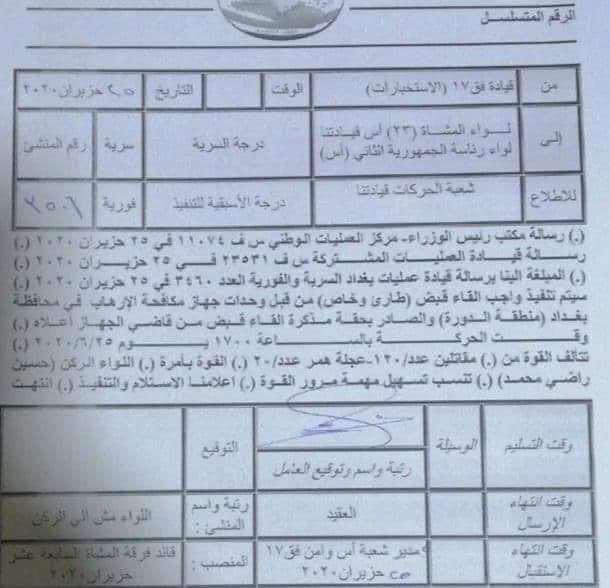 الرقم المتسلسل
من قيادة فق١٧ (الاستخبارات) الوقت التاريخ ٢٥ حزيران ٢٠٢٠
إلى لواء المشاة (٢٣) أس قيادتنا درجة السرية سرية رقم المنشئ
لواء رئاسة الجمهورية الثاني (أس)
للاطلاع شعبة الحركات قيادتنا درجة الأسبقية للتنفيذ فورية ٣٥٠٦
(.) رسالة مكتب رئيس الوزراء- مركز العمليات الوطني س ف ١١٠٧٤ في ٢٥ حزيران ٢٠٢٠ (.)
رسالة قيادة العمليات المشتركة س ف ٢٣٥٣١ في ٢٥ حزيران ٢٠٢٠ (.)
(.) المبلغة الينا برسالة قيادة عمليات بغداد السرية والفورية العدد ٣٤٦٠ في ٢٥ حزيران ٢٠٢٠ (.)
سيتم تنفيذ واجب القاء قبض (طارئ وخاص) من قبل وحدات جهاز مكافحة الإرهاب في محافظة
بغداد (منطقة الدورة) والصادر بحقة مذكرة القاء قبض من قاضي الجهاز أعلاه (.)
وقت الحركة بالساعة ١٧٠٠ يوم ٢٠٢٠/٦/٢٥ (.)
تتألف القوة من (.) مقاتلين عدد/١٢٠-عجلة همر عدد/٢٠ (.) القوة بأمرة (.) اللواء الركن (حسين
راضي محمد) (.) تنسب تسهيل مهمة مرور القوة (.) اعلامنا الاستلام والتنفيذ (.) انتهت
وقت التسليم الوسيلة التوقيع
رتبة واسم وتوقيع العامل
وقت انتهاء الإرسال العقيد رتبة واسم المنشئ: اللواء الركن
وقت انتهاء الاستقبال مدير شعبة أس وامن فق١٧ المنصب: قائد فرقة المشاة السابعة عشر
٢٥ حزيران ٢٠٢٠ حزيران ٢٠٢٠